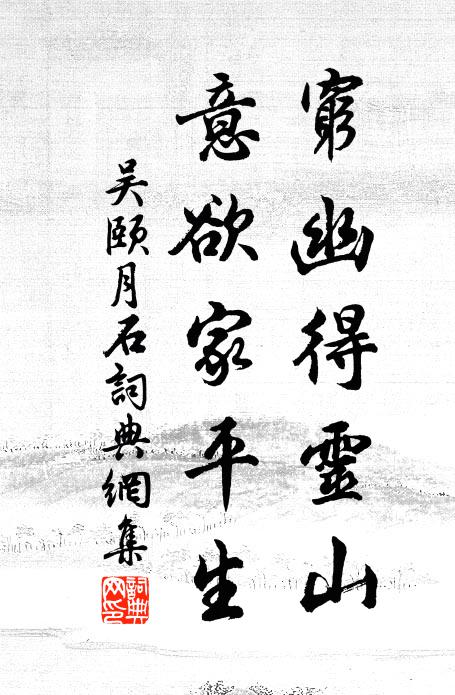 窮幽得靈山
意欲家平生
吴頤月石詞典網集
詞典